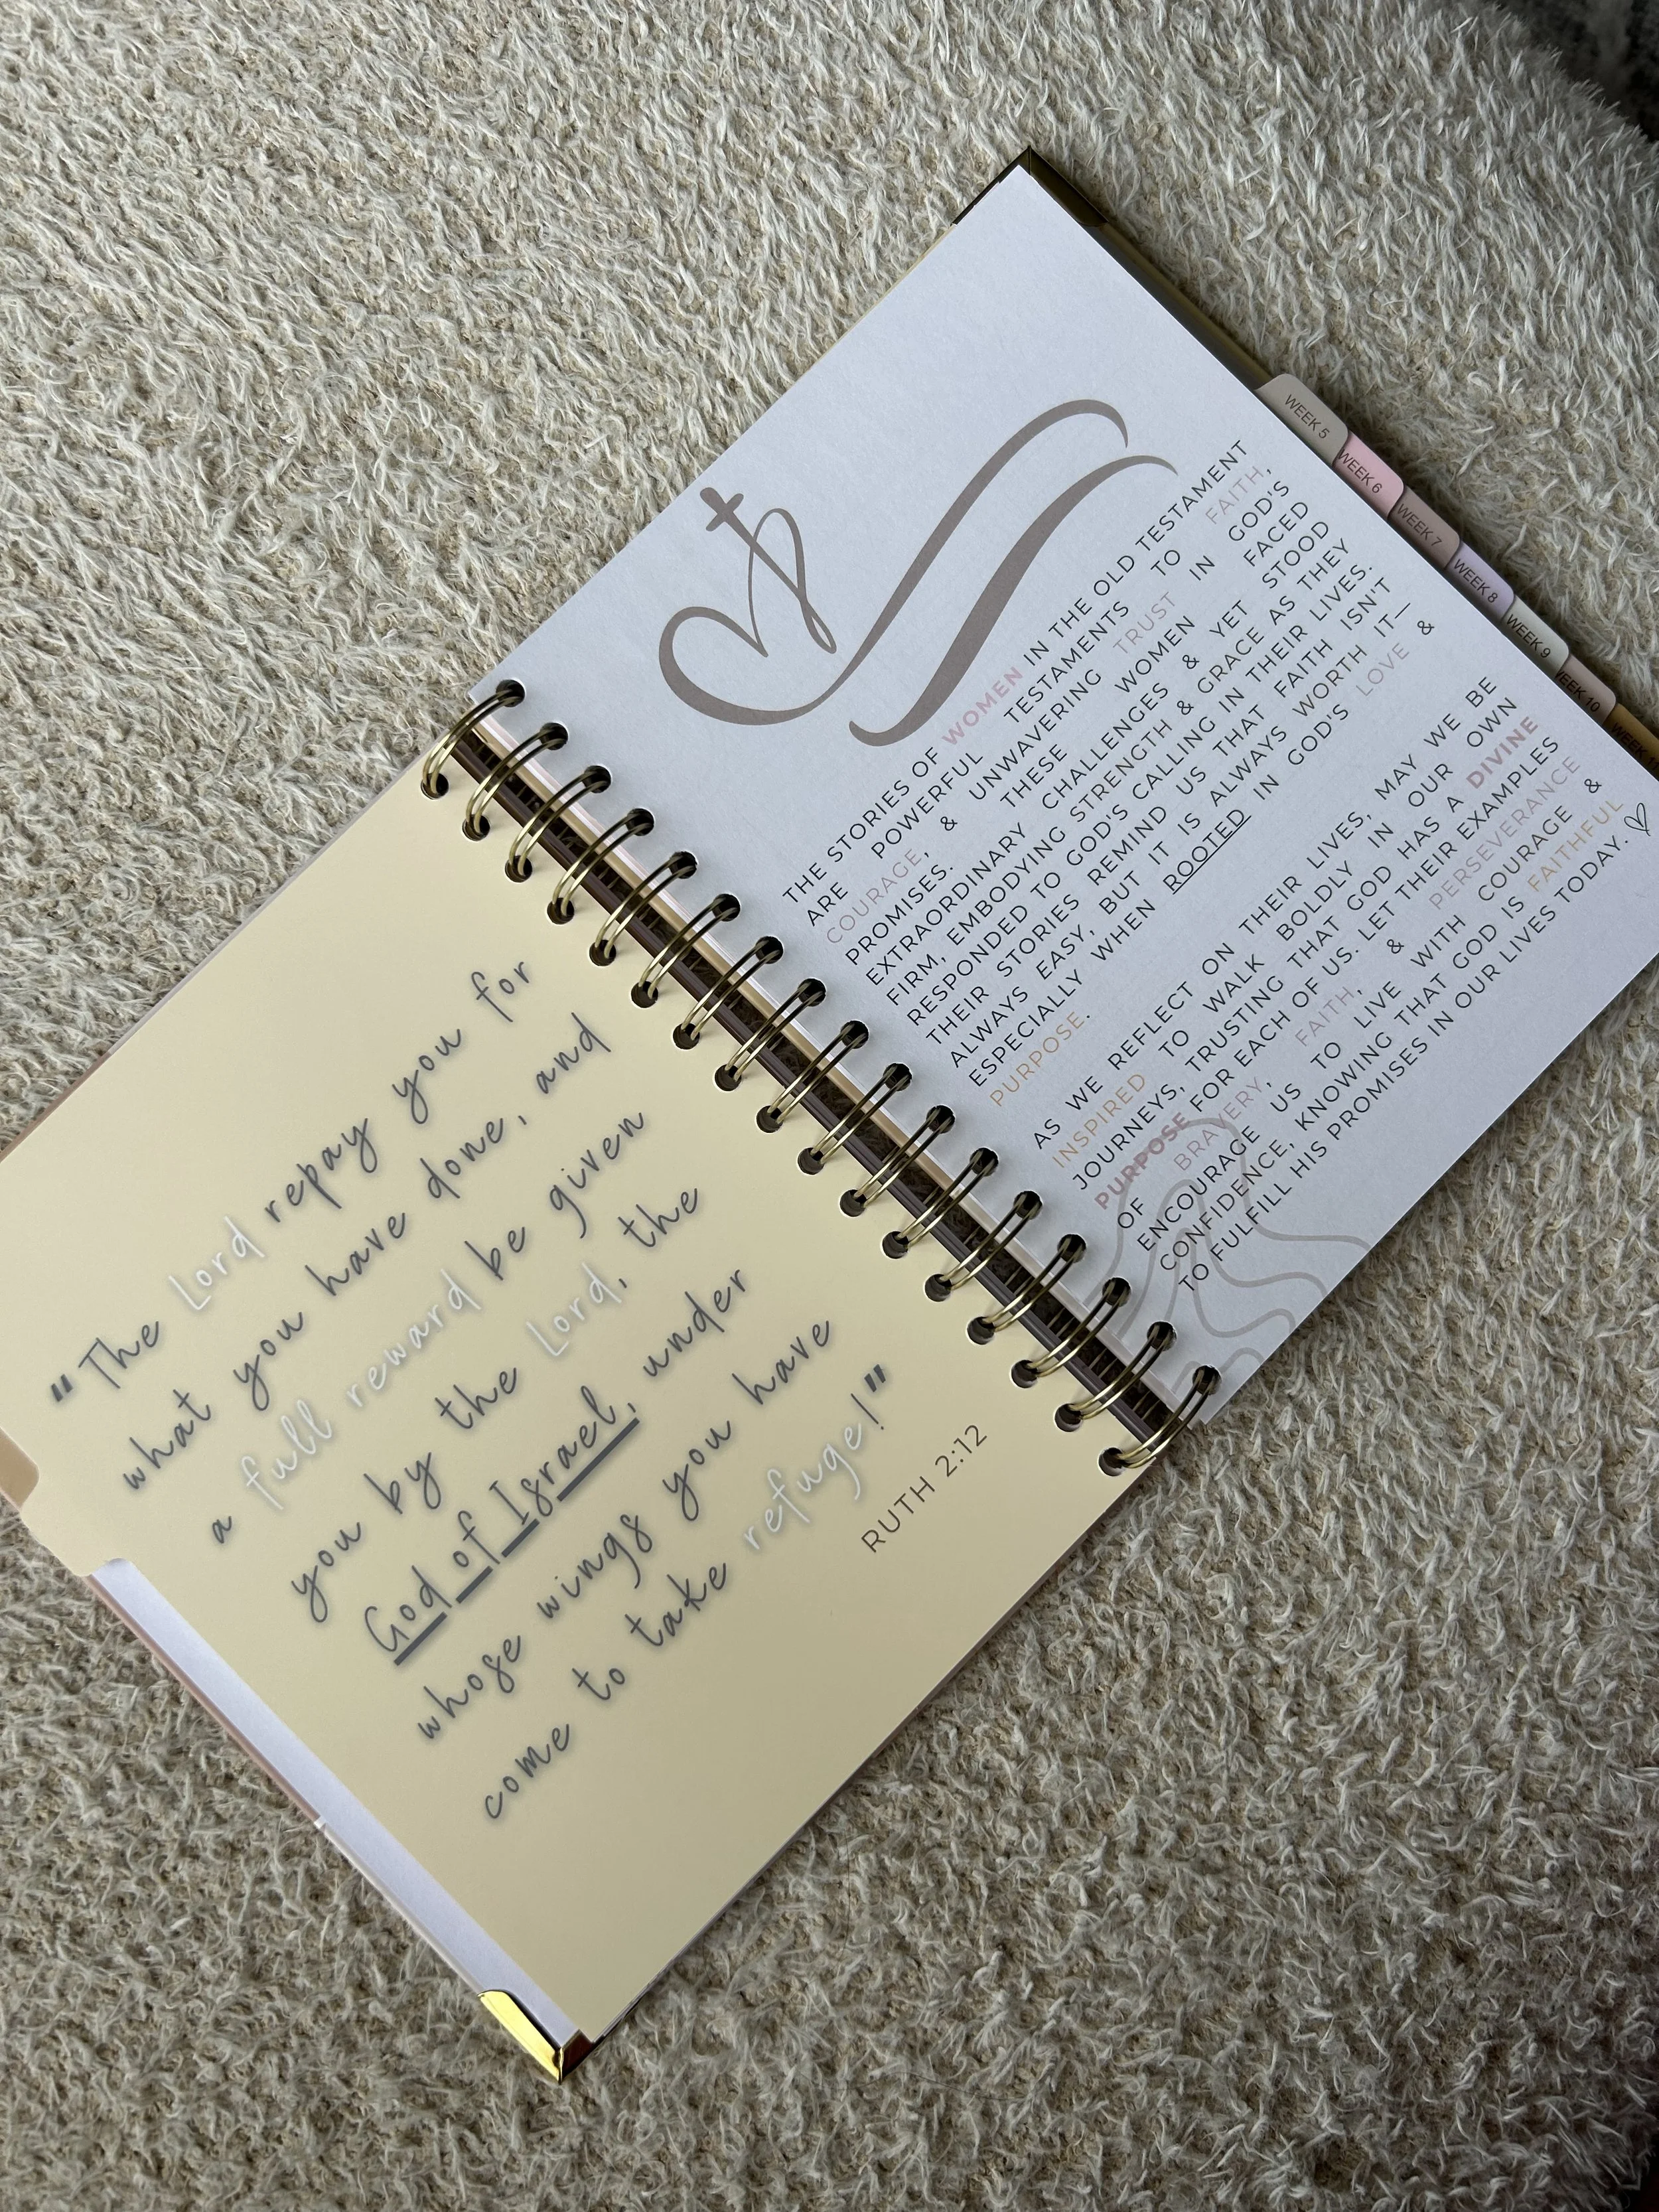 "The Lord repay you for
what you have done, and
a full reward be given
you by the Lord, the
God of Israel, under
whose wings you have
come to take refuge!"
RUTH 2:12
THE STORIES OF WOMEN IN THE OLD TESTAMENT
ARE POWERFUL TESTAMENTS TO FAITH,
COURAGE, & UNWAVERING TRUST IN GOD'S
PROMISES. THESE WOMEN FACED
EXTRAORDINARY CHALLENGES & YET STOOD
FIRM, EMBODYING STRENGTH & GRACE AS THEY
RESPONDED TO GOD'S CALLING IN THEIR LIVES.
THEIR STORIES REMIND US THAT FAITH ISN'T
ALWAYS EASY, BUT IT IS ALWAYS WORTH IT—
ESPECIALLY WHEN ROOTED IN GOD'S LOVE &
PURPOSE.
AS WE REFLECT ON THEIR LIVES, MAY WE BE
INSPIRED TO WALK BOLDLY IN OUR OWN
JOURNEYS, TRUSTING THAT GOD HAS A DIVINE
PURPOSE FOR EACH OF US. LET THEIR EXAMPLES
OF BRAVERY, FAITH, & PERSEVERANCE
ENCOURAGE US TO LIVE WITH COURAGE &
CONFIDENCE, KNOWING THAT GOD IS FAITHFUL
TO FULFILL HIS PROMISES IN OUR LIVES TODAY.
WEEK 5
WEEK 6
WEEK 7
WEEK 8
WEEK 9
WEEK 10